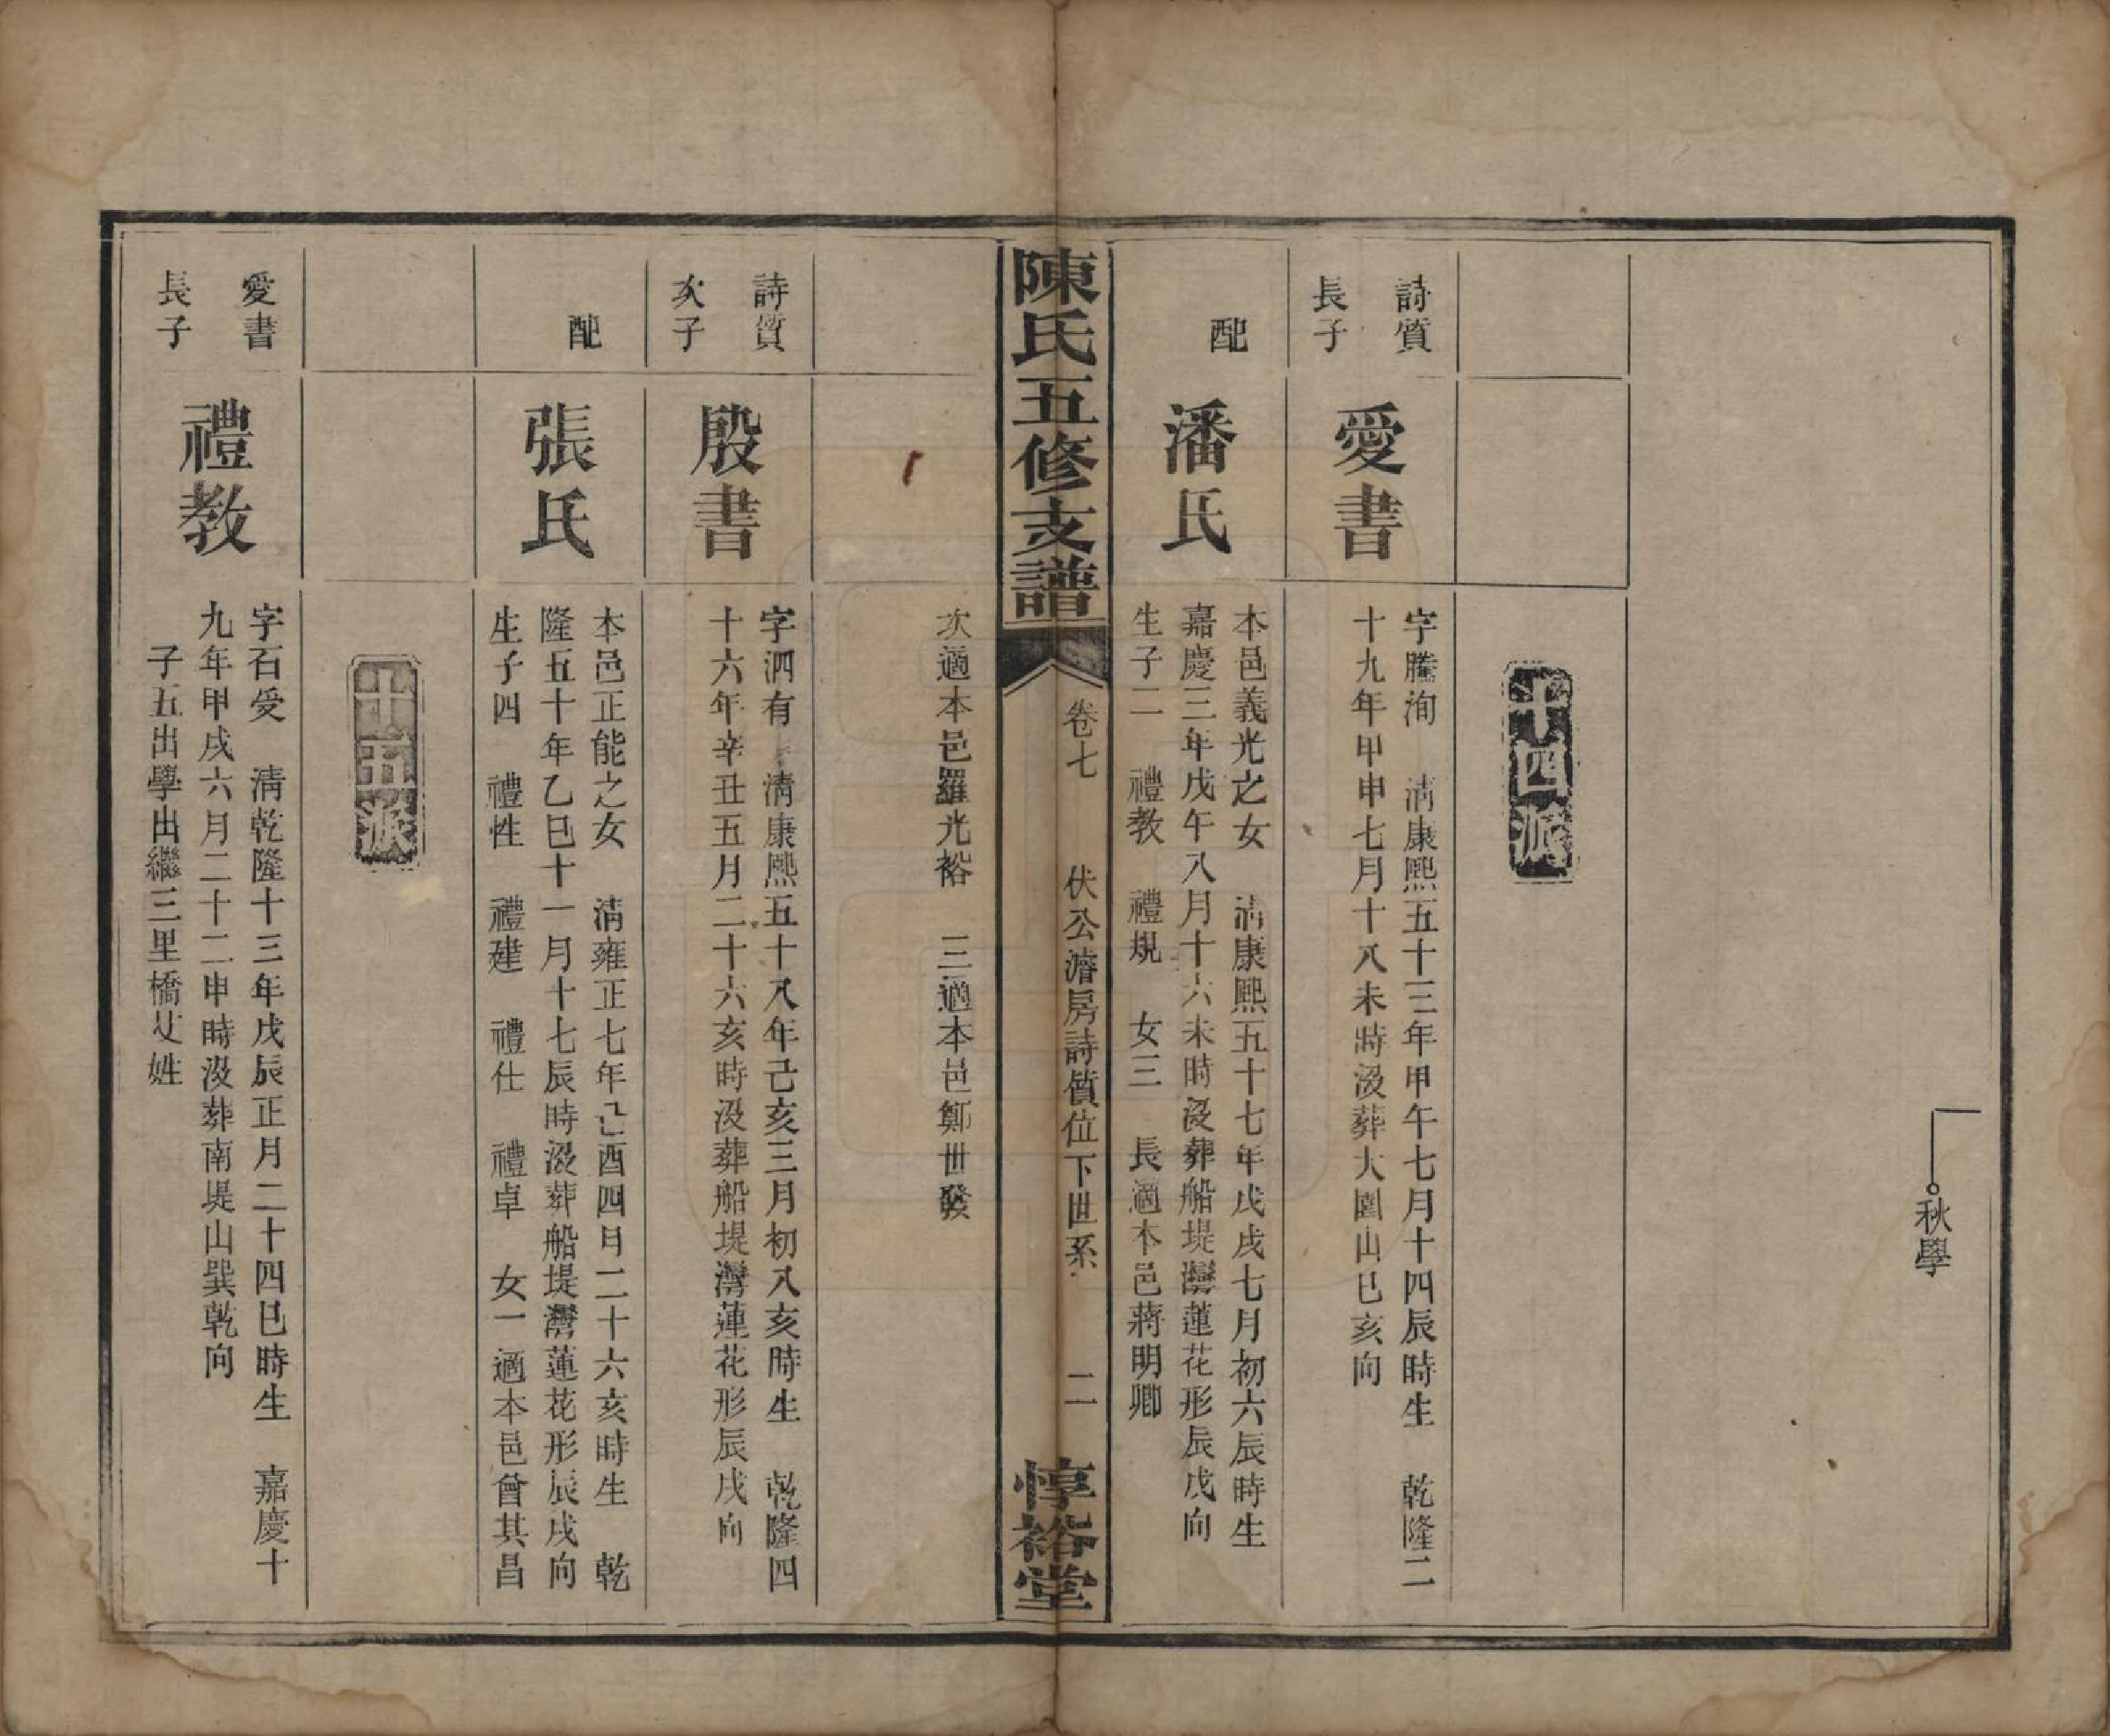 秋學
十四派
詩質
長子
愛書
字騰洵　清康熙五十三年甲午七月十四辰時生　乾隆二
十九年甲申七月十八未時沒葬大圍山巳亥向
配
潘氏
本邑義光之女　清康熙五十七年戊戌七月初六辰時生
嘉慶三年戊午八月十六未時沒葬船堤灣蓮花形辰戌向
生子二　禮教　禮規　女三　長適本邑蔣明卿
陳氏五修支譜
卷七　伏公濬房詩質位下世系　二
惇裕堂
次適本邑羅光裕　三適本邑鄭世發
詩質
次子
殷書
字泗有　清康熙五十八年己亥三月初八亥時生　乾隆四
十六年辛丑五月二十六亥時沒葬船堤灣蓮花形辰戌向
配
張氏
本邑正能之女　清雍正七年己酉四月二十六亥時生　乾
隆五十年乙巳十一月十七辰時沒葬船堤灣蓮花形辰戌向
生子四　禮性　禮建　禮仕　禮卓　女一適本邑曾其昌
十五派
愛書
長子
禮教
字石受　清乾隆十三年戊辰正月二十四巳時生　嘉慶十
九年甲戌六月二十二申時沒葬南堤山巽乾向
子五出學出繼三里橋艾姓